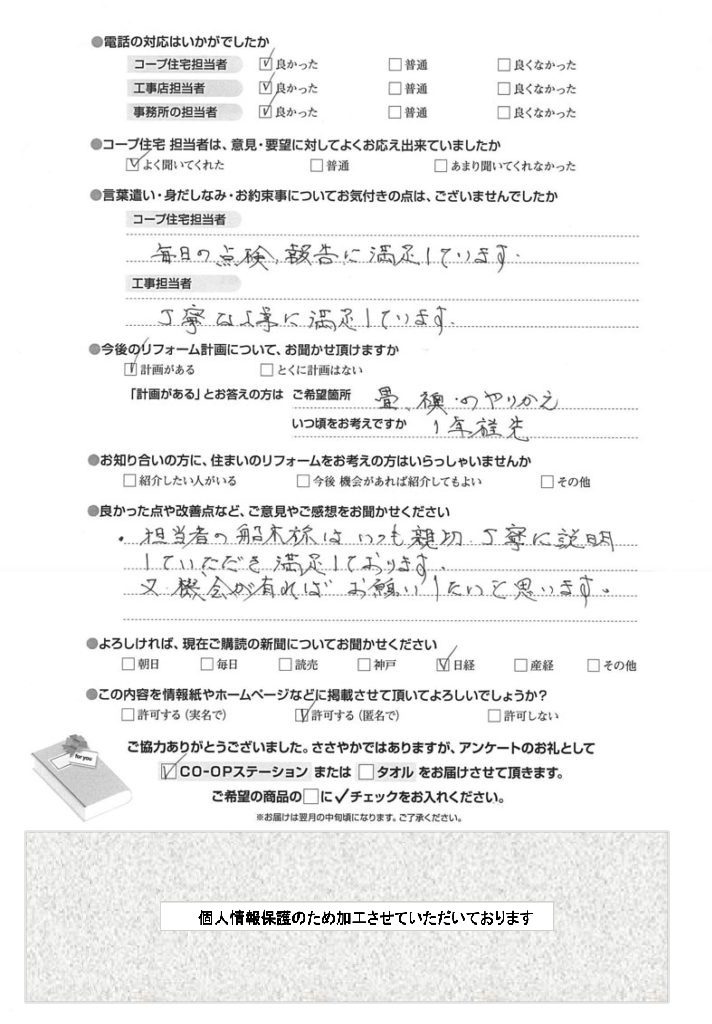 ●電話の対応はいかがでしたか
コープ住宅担当者 ☑良かった □普通 □良くなかった
工事店担当者 ☑良かった □普通 □良くなかった
事務所の担当者 ☑良かった □普通 □良くなかった
●コープ住宅 担当者は、意見・要望に対してよくお応え出来ていましたか
☑よく聞いてくれた □普通 □あまり聞いてくれなかった
●言葉遣い・身だしなみ・お約束事についてお気付きの点は、ございませんでしたか
コープ住宅担当者
毎日の点検、報告に満足しています.
工事担当者
丁寧な作業に満足しています.
●今後のリフォーム計画について、お聞かせ頂けますか
☑計画がある □とくに計画はない
「計画がある」とお答えの方は ご希望箇所 畳、襖.のやりかえ
いつ頃をお考えですか 1年程先
●お知り合いの方に、住まいのリフォームをお考えの方はいらっしゃいませんか
□紹介したい人がいる □今後 機会があれば紹介してもよい □その他
●良かった点や改善点など、ご意見やご感想をお聞かせください
・担当者の船木様はいつも親切.丁寧に説明
していただき満足しております.
又機会が有ればお願いしたいと思います.
●よろしければ、現在ご購読の新聞についてお聞かせください
□朝日 □毎日 □読売 □神戸 ☑日経 □産経 □その他
●この内容を情報紙やホームページなどに掲載させて頂いてよろしいでしょうか?
□許可する(実名で) ☑許可する(匿名で) □許可しない
for you
ご協力ありがとうございました。ささやかではありますが、アンケートのお礼として
☑CO-OPステーション または □タオル をお届けさせて頂きます。
ご希望の商品の□に✓チェックをお入れください。
※お届けは翌月の中旬頃になります。ご了承ください。
個人情報保護のため加工させていただいております